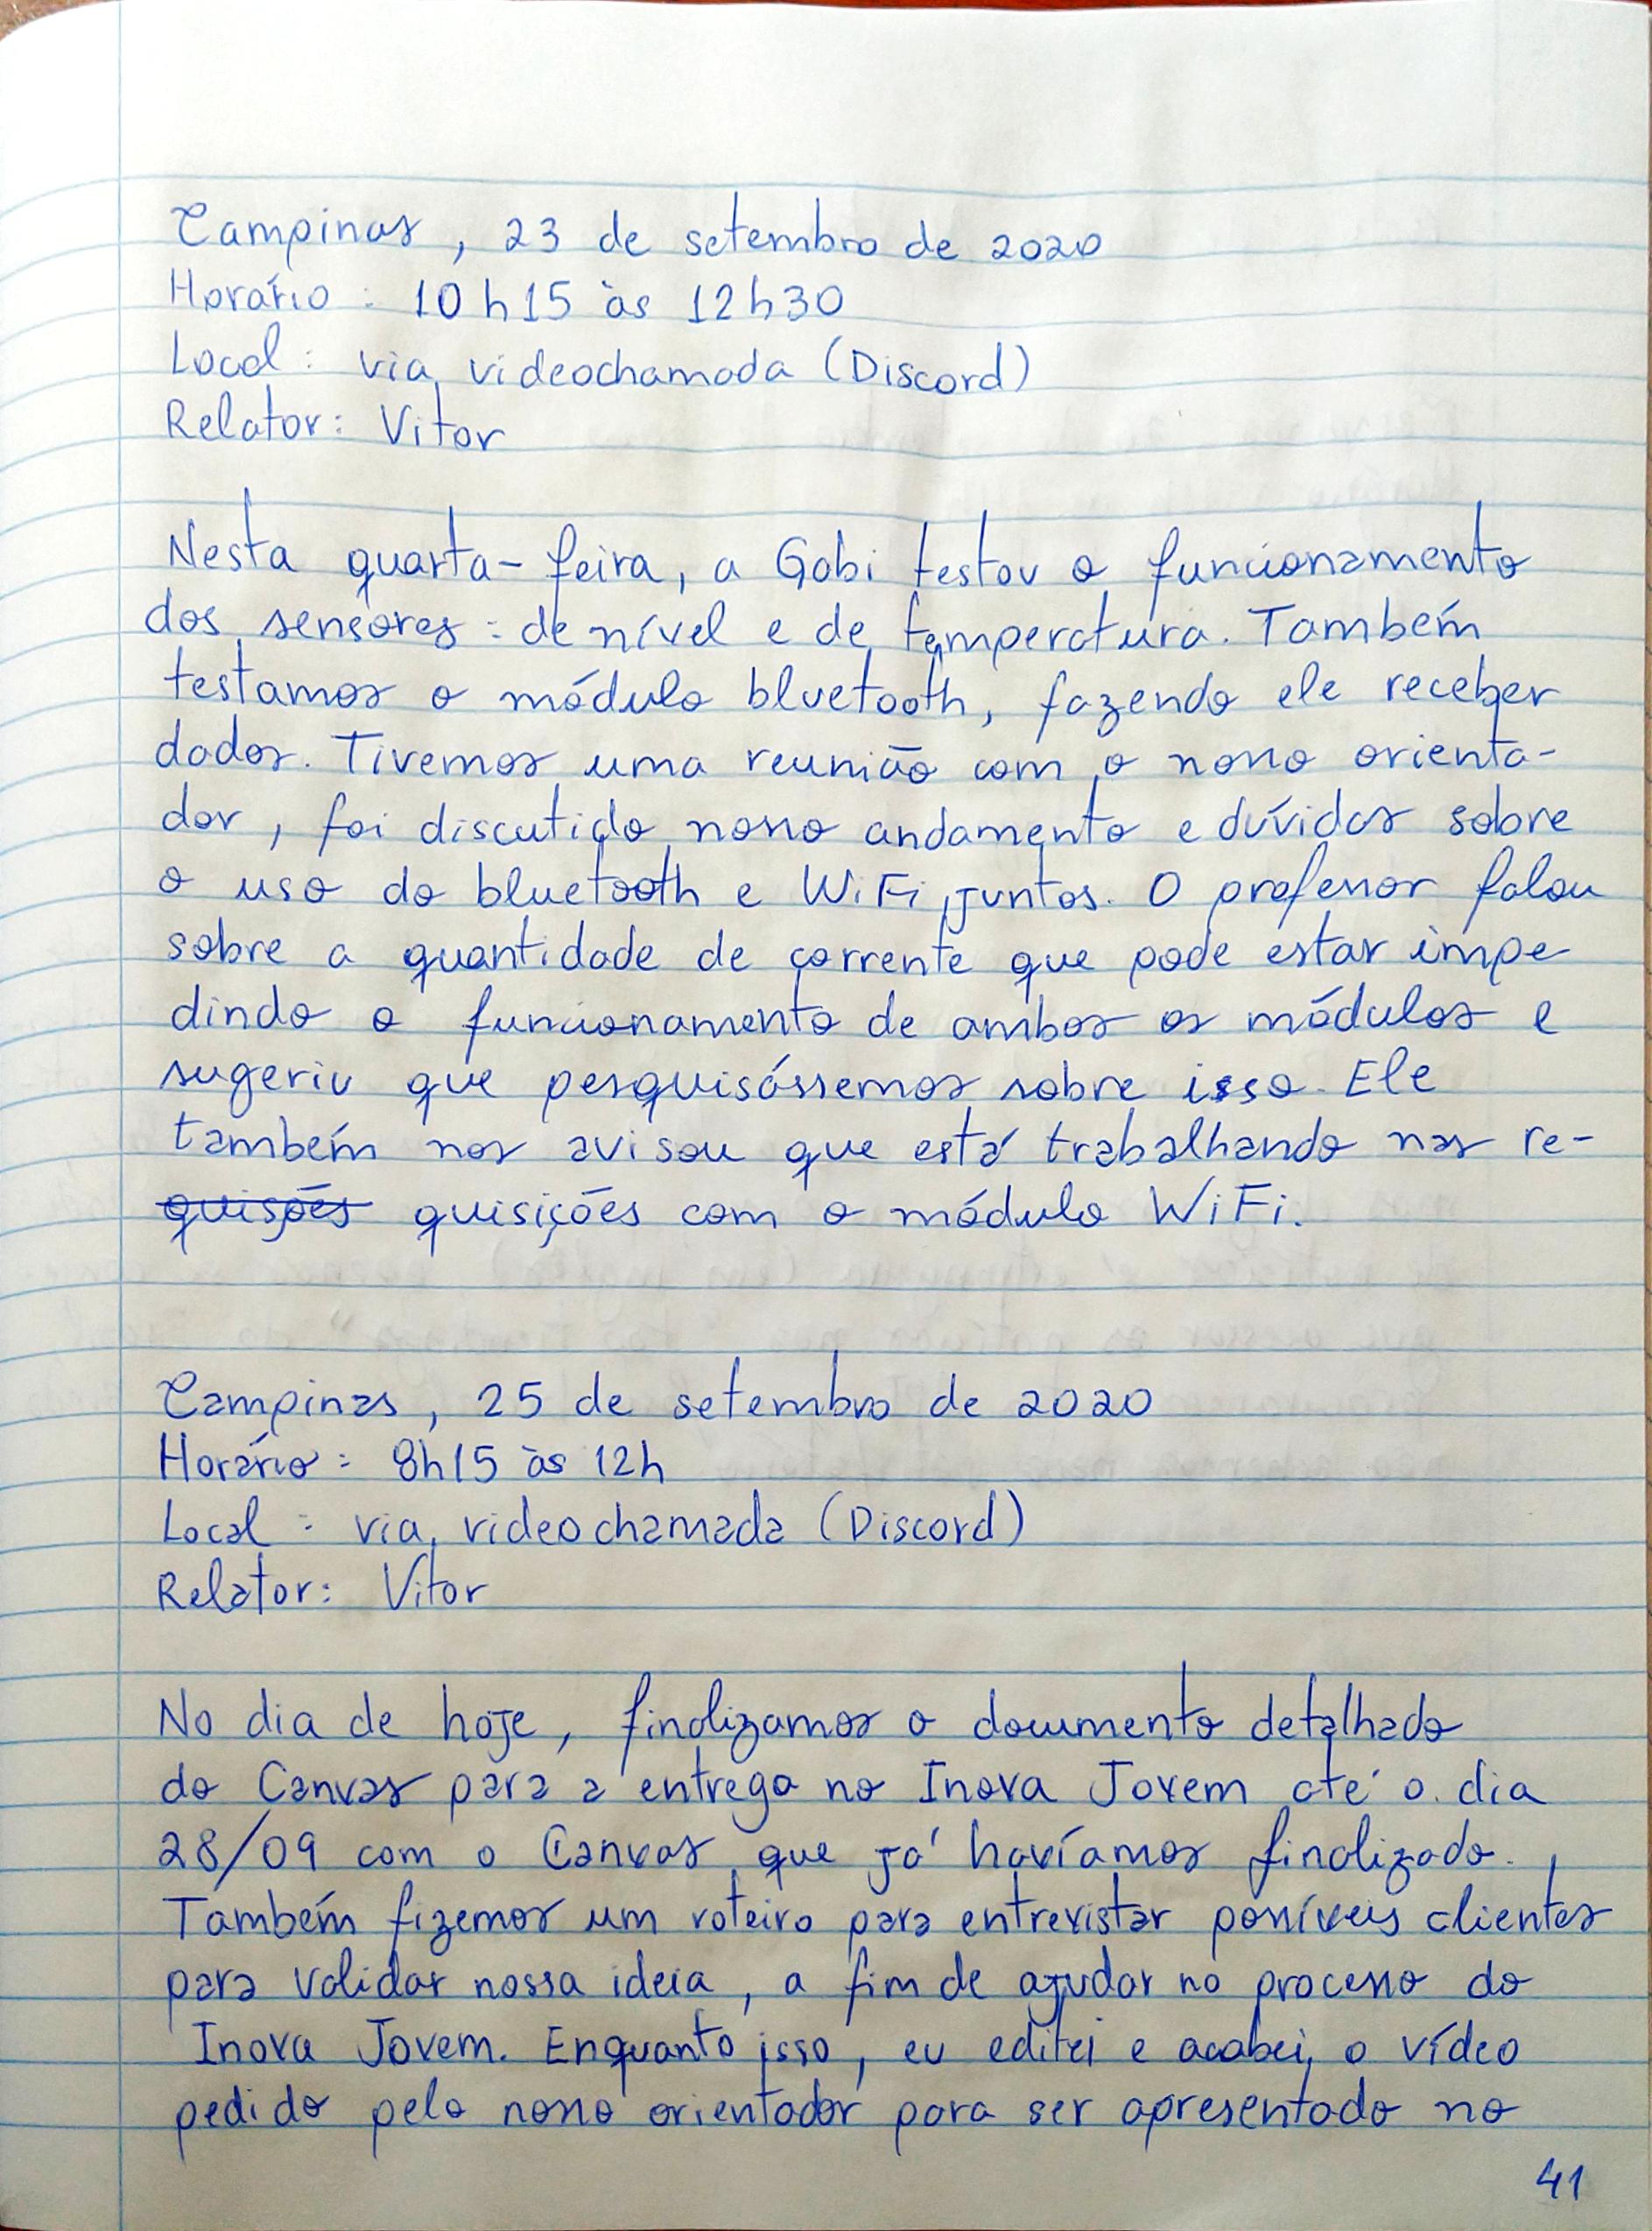 Campinas, 23 de setembro de 2020
Horário: 10h15 às 12h30
Local: via videochamada (Discord)
Relator: Vitor
Nesta quarta-feira, a Gabi testou o funcionamento
dos sensores: de nível e de temperatura. Também
testamos o módulo bluetooth, fazendo ele receber
dados. Tivemos uma reunião com o nosso orienta-
dor, foi discutido nosso andamento e dúvidas sobre
o uso do bluetooth e WiFi juntos. O professor falou
sobre a quantidade de corrente que pode estar impe
dindo o funcionamento de ambos os módulos e
sugeriu que pesquisássemos sobre isso. Ele
também nos avisou que está trabalhando nas re-
quisões quisições com o módulo WiFi.
Campinas, 25 de setembro de 2020
Horário: 8h15 às 12h
Local: via videochamada (Discord)
Relator: Vitor
No dia de hoje, finalizamos o documento detalhado
do Canvas para a entrega no Inova Jovem até o dia
28/09 com o Canvas que já havíamos finalizado.
Também fizemos um roteiro para entrevistar possíveis clientes
para validar nossa ideia, a fim de ajudar no processo do
Inova Jovem. Enquanto isso, eu editei e acabei o vídeo
pedido pelo nosso orientador para ser apresentado no
41